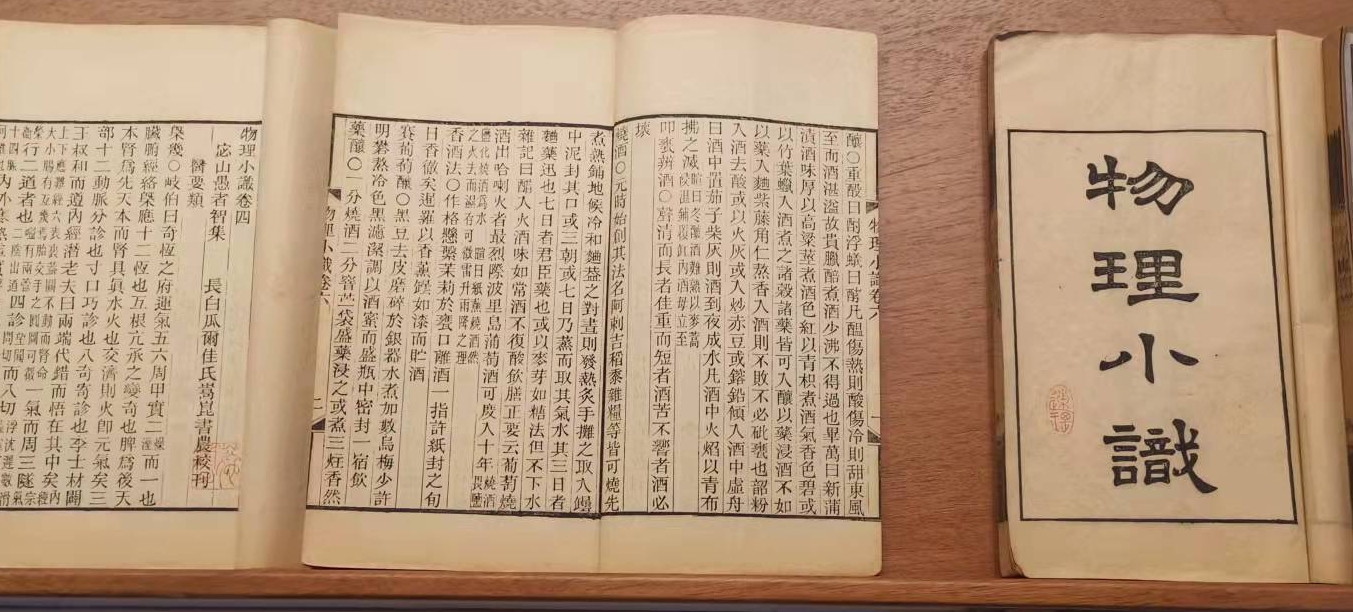 物理小識
釀○重酘曰酎浮蟻曰醅凡醖傷熱則酸傷冷則甜東風
至而酒湛溢故貴臘醅煮酒少沸不得過也畢萬曰新蒲
漬酒味厚以高粱莖煮酒色紅以青枳煮酒氣香色碧或
以竹葉蠟入酒煮之諸穀諸藥皆可入釀以藥浸酒不如
以藥入麯紫藤角仁熬香入酒則不敗不必砒甕也韶粉
入酒去酸或以火灰或入炒赤豆或鎔鉛傾入酒中虛舟
曰酒中置茄子柴灰則酒到夜成水凡酒中火焰以青布
拂之滅 暄曰冬釀酒難以麥蒿
叩甕辨酒○聲清而長者佳重而短者酒苦不響者酒必
壞
燒酒○元時始創其法名阿刺吉稻黍雜糧等皆可燒先
煮熟鋪地候冷和麯盎之對晝則發熱炙手攤之取入罎
中泥封其口或三朝或七日乃蒸而取其氣水其三日者
麯藥迅也七日者君臣藥也或以麥芽如糖法但不下水
雜記曰醋入火酒味如常酒不復酸飲膳正要云葡萄燒
酒出哈喇火者最烈際波里島葡萄酒可度入十年
香酒法○作格懸繫茉莉於甕口離酒一指許紙封之旬
日香徹矣暹羅以香薰鏝如漆而貯酒
賽葡萄釀○黑豆去皮磨碎於銀器水煮加數烏梅少許
明礬熬冷色黑濾潔調以酒蜜而盛瓶中密封一宿飲
藥釀○一分燒酒二分窨酒袋盛藥浸之或煮三炷香然
物理小識卷六
一
物理小識卷六
二
物理小識卷四
宓山愚者智集 長白瓜爾佳氏嵩崑書農校刊
醫要類
㮣幾○岐伯曰奇恆之府運氣五六周甲實二 而一也
臟腑經絡㮣應十二恆也五根亢承之變奇也脾爲後天
本腎爲先天本而腎具眞水火也交濟則火卽元氣矣三
部十二動脈分診也寸口巧診也八奇奇診也李士材闢
王叔和而遵內經潛老夫曰兩端代錯而悟在其中矣
一氣而周三隧
衞行二道者也 四診 而八切